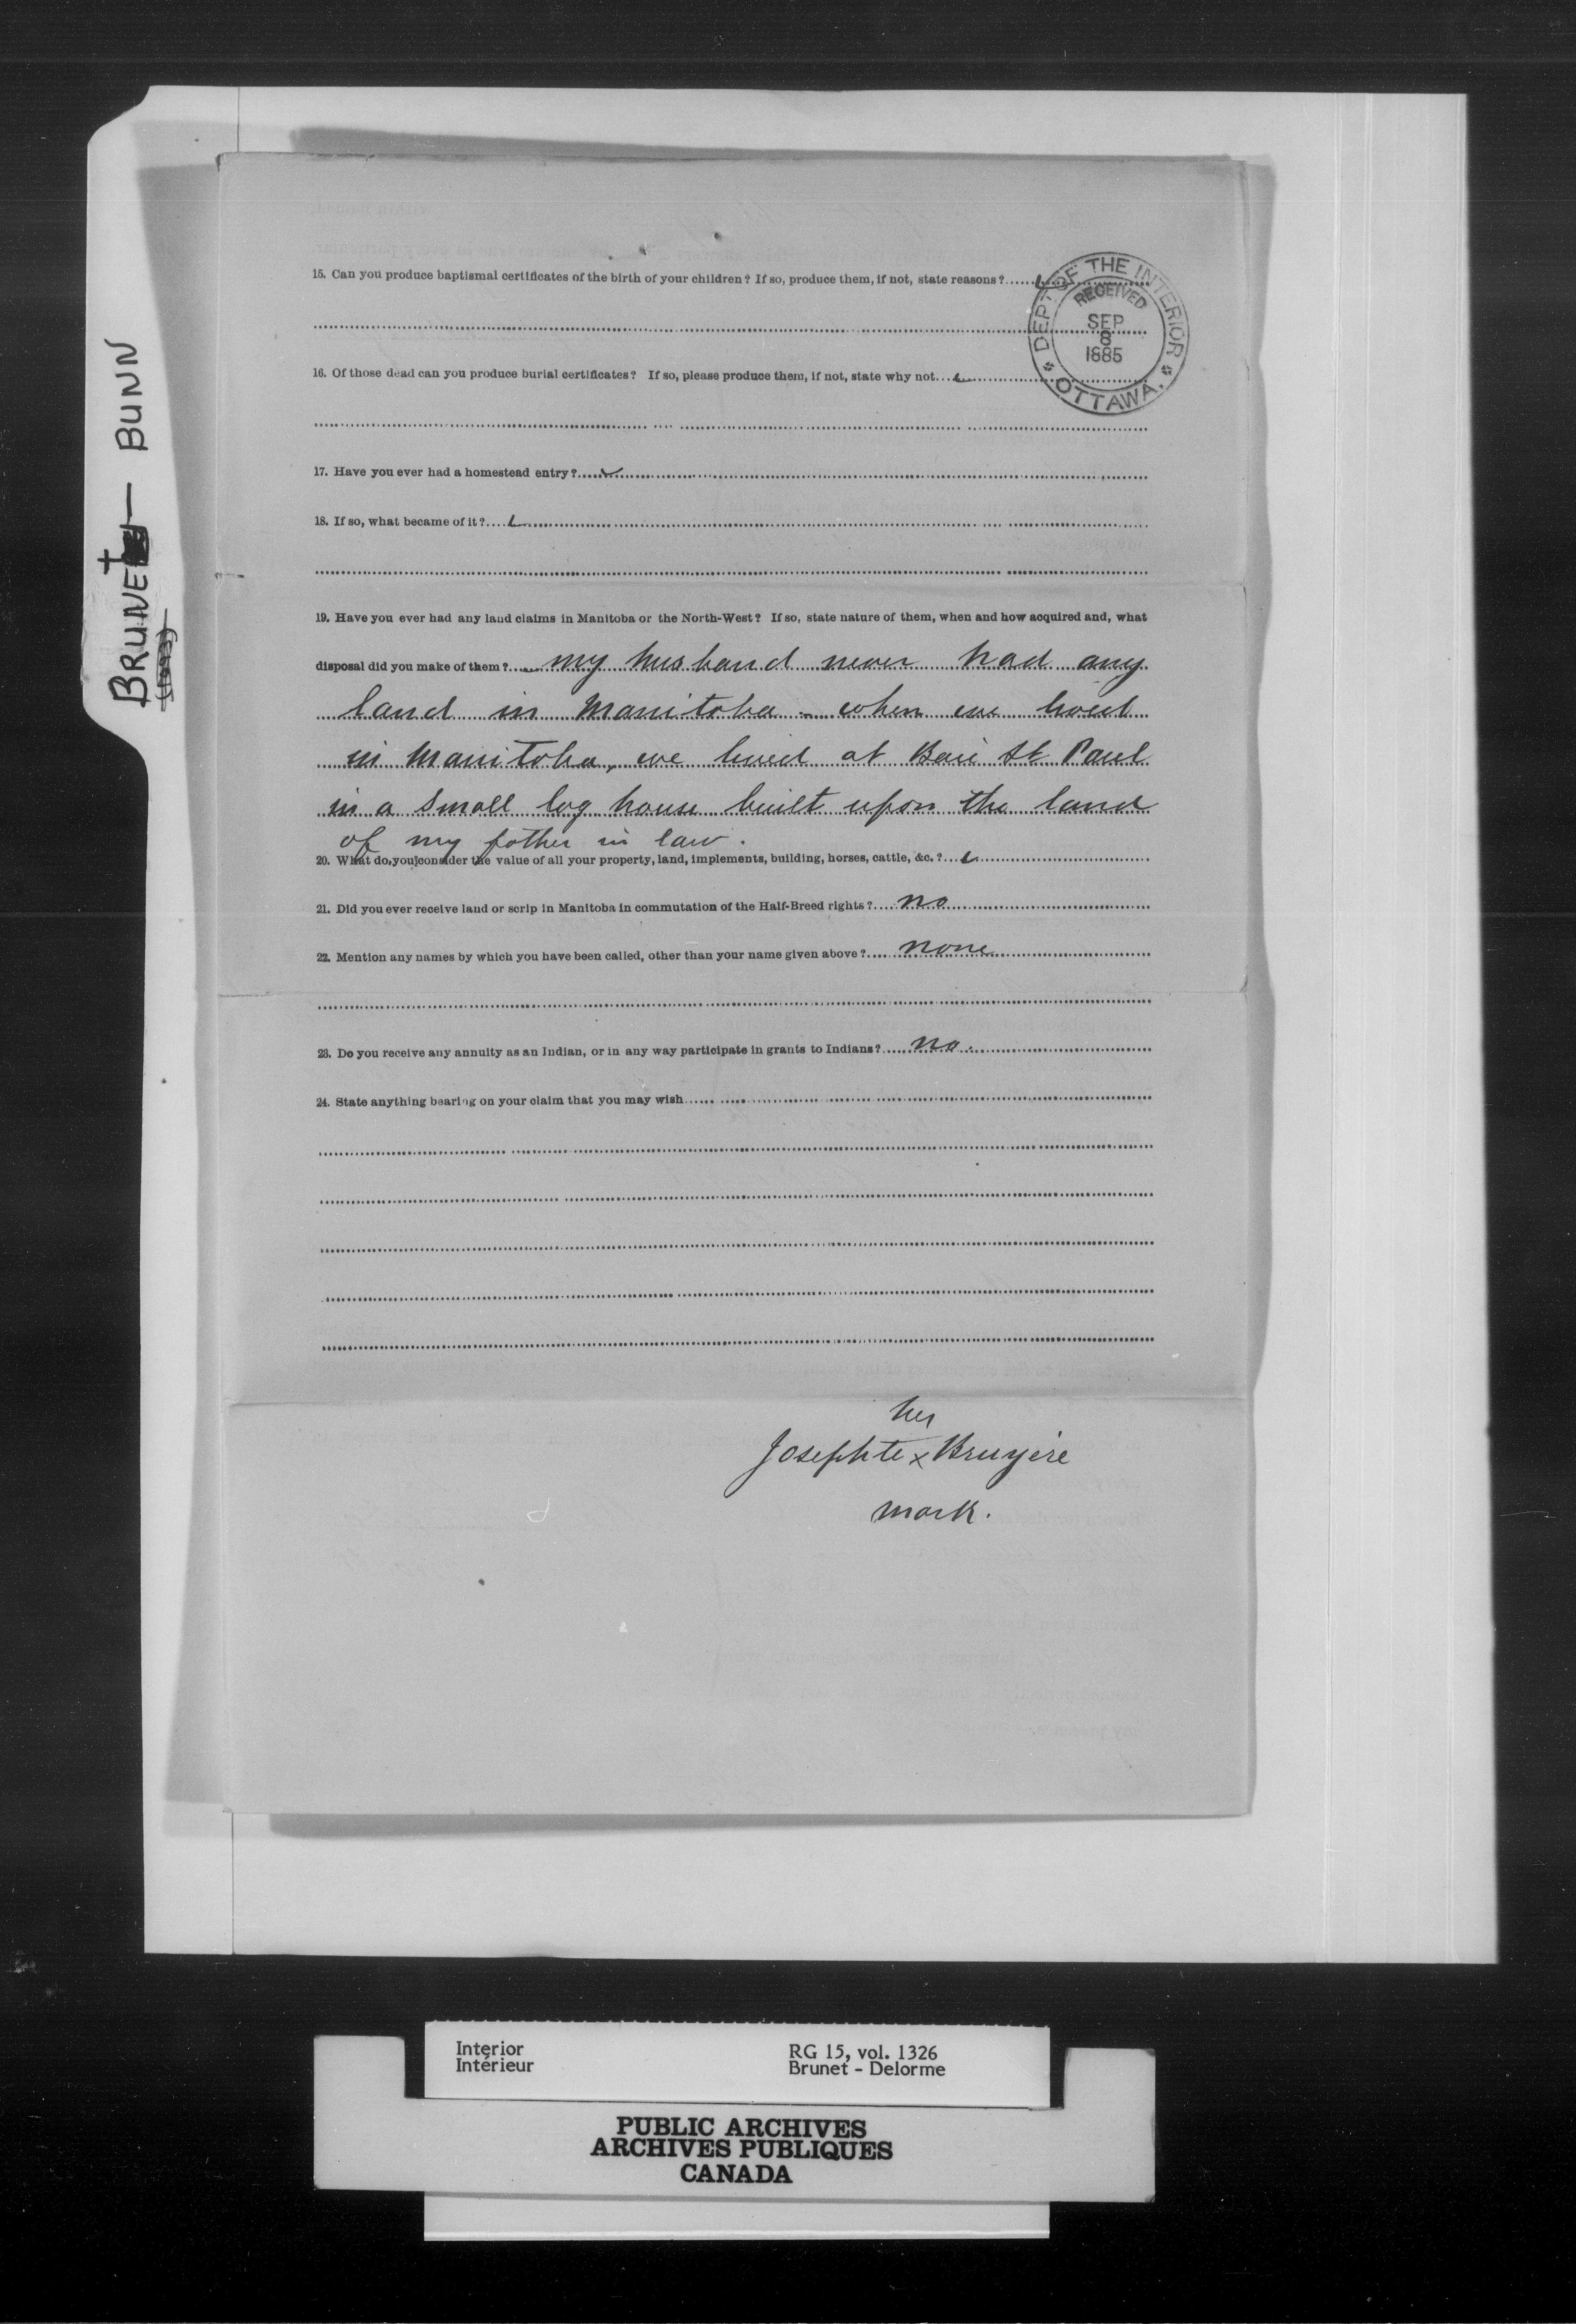 BRUNET — BUNN
15. Can you produce baptismal certificates of the birth of your children? If so, produce them, if not, state reasons?
DEPT OF THE INTERIOR
RECEIVED
SEP
8
1885
OTTAWA.
16. Of those dead can you produce burial certificates? If so, please produce them, if not, state why not
17. Have you ever had a homestead entry?
18. If so, what became of it?
19. Have you ever had any land claims in Manitoba or the North-West? If so, state nature of them, when and how acquired and, what
disposal did you make of them? my husband never had any
land in Manitoba - when we lived
in Manitoba, we lived at Baie St Paul
in a small log house built upon the land
of my father in law.
20. What do you consider the value of all your property, land, implements, building, horses, cattle, &c.?
21. Did you ever receive land or scrip in Manitoba in commutation of the Half-Breed rights? no
22. Mention any names by which you have been called, other than your name given above? none
23. Do you receive any annuity as an Indian, or in any way participate in grants to Indians? no.
24. State anything bearing on your claim that you may wish
her
Josephte x Bruyère
mark.
Interior
Intérieur
RG 15, vol. 1326
Brunet - Delorme
PUBLIC ARCHIVES
ARCHIVES PUBLIQUES
CANADA